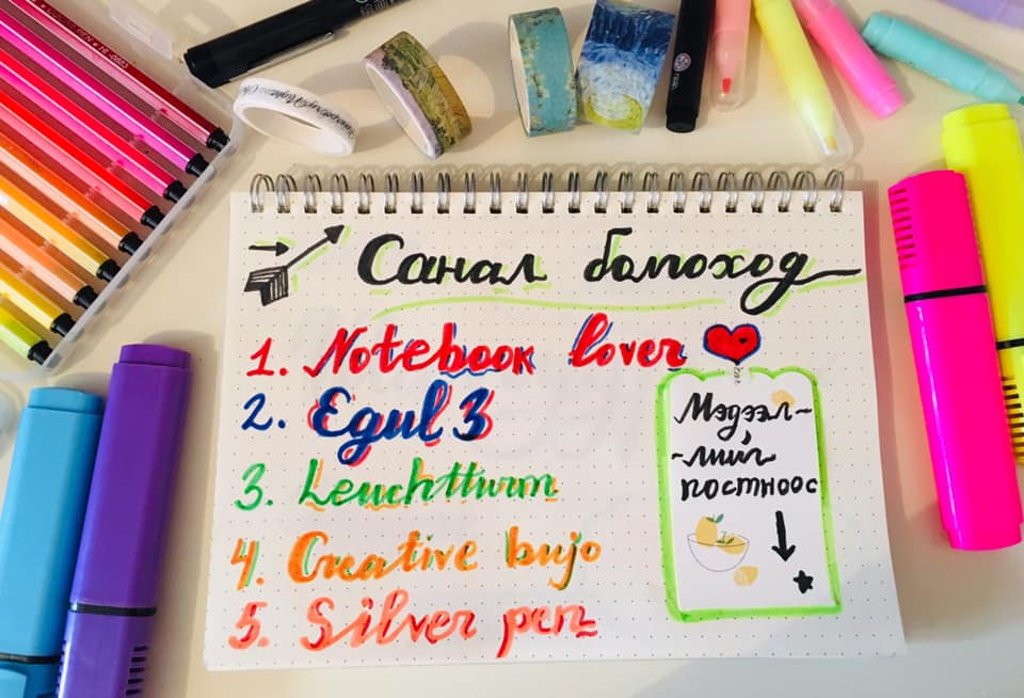 Санал болгоход
1. Notebook lover
2. Egul 3
3. Leuchtturm
4. Creative bujo
5. Silver pen
Мэдээл-
-лийг
постноос